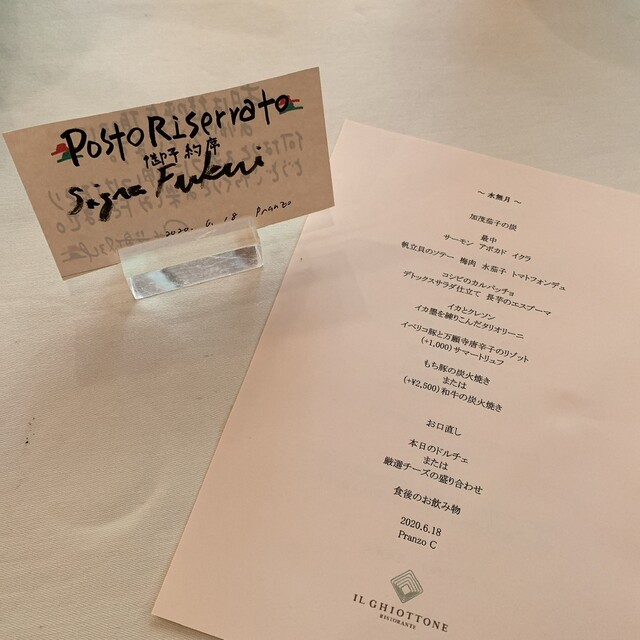 Posto Riserrato
御予約席
Sigra Fukui
2020. 6. 18 Pranzo
～水無月～
加茂茄子の炭
最中
サーモン アボカド イクラ
帆立貝のソテー 梅肉 水茄子 トマトフォンデュ
コシビのカルパッチョ
デトックスサラダ仕立て 長芋のエスプーマ
イカとクレソン
イカ墨を練りこんだタリオリーニ
イベリコ豚と万願寺唐辛子のリゾット
(+1,000)サマートリュフ
もち豚の炭火焼き
または
(+¥2,500)和牛の炭火焼き
お口直し
本日のドルチェ
または
厳選チーズの盛り合わせ
食後のお飲み物
2020.6.18
Pranzo C
IL GHIOTTONE
RISTORANTE